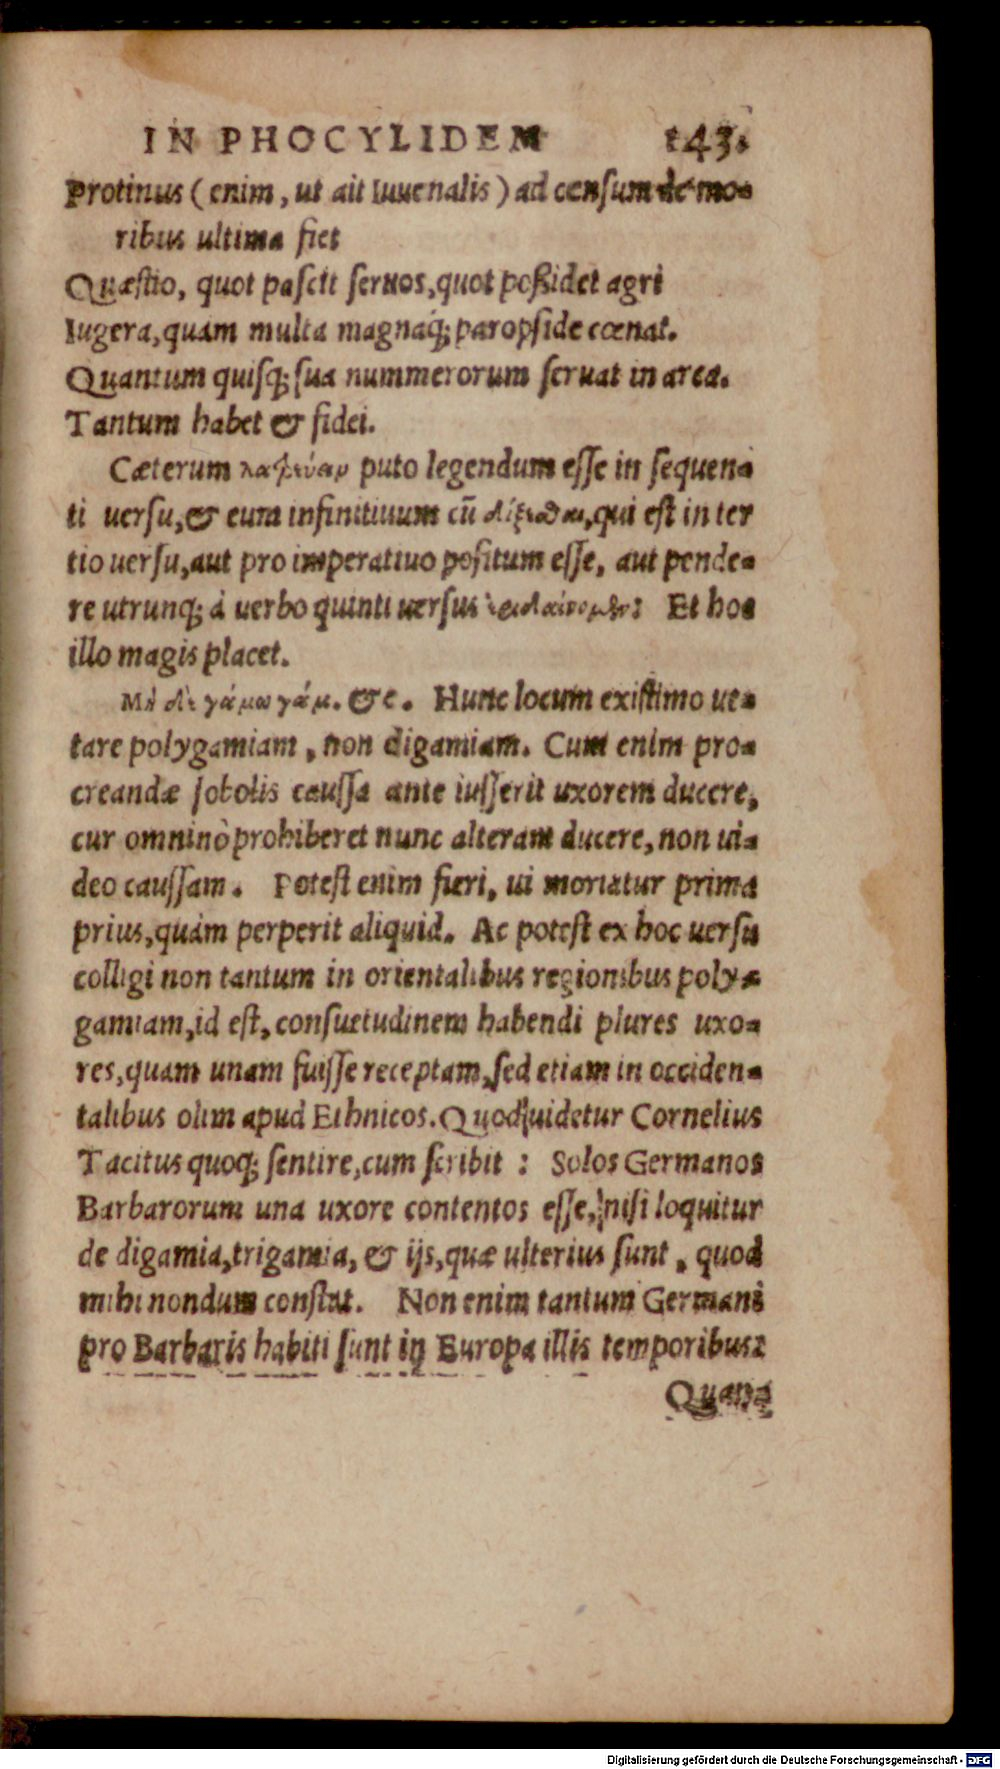 IN PHOCYLIDEM 143.
Protinus (enim, ut ait Iuuenalis) ad censum de mo-
ribus ultima fiet
Quæstio, quot pascit seruos, quot poßidet agri
Iugera, quàm multa magnaq́; paropside cœnat.
Quantum quisq; sua nummerorum seruat in arca.
Tantum habet & fidei.
Cæterum puto legendum esse in sequen-
ti uersu, & eum infinitiuum cū qui est in ter
tio uersu, aut pro imperatiuo positum esse, aut pende-
re utrunq; à uerbo quinti uersus Et hoc
illo magis placet.
Μὴ δὲ γάμω γάμ. &c. Hunc locum existimo ue-
tare polygamiam, non digamiam. Cum enim pro-
creandæ sobolis caussa ante iusserit uxorem ducere,
cur omninò prohiberet nunc alteram ducere, non ui-
deo caussam. Potest enim fieri, ui moriatur prima
prius, quàm perperit aliquid. Ac potest ex hoc uersu
colligi non tantum in orientalibus regionibus poly-
gamiam, id est, consuetudinem habendi plures uxo-
res, quam unam fuisse receptam, sed etiam in occiden-
talibus olim apud Ethnicos. Quod uidetur Cornelius
Tacitus quoq; sentire, cum scribit : Solos Germanos
Barbarorum una uxore contentos esse, nisi loquitur
de digamia, trigamia, & ijs, quæ ulterius sunt, quod
mihi nondum constat. Non enim tantum Germani
pro Barbaris habiti sunt in Europa illis temporibus:
Quan-
Digitalisierung gefördert durch die Deutsche Forschungsgemeinschaft - DFG